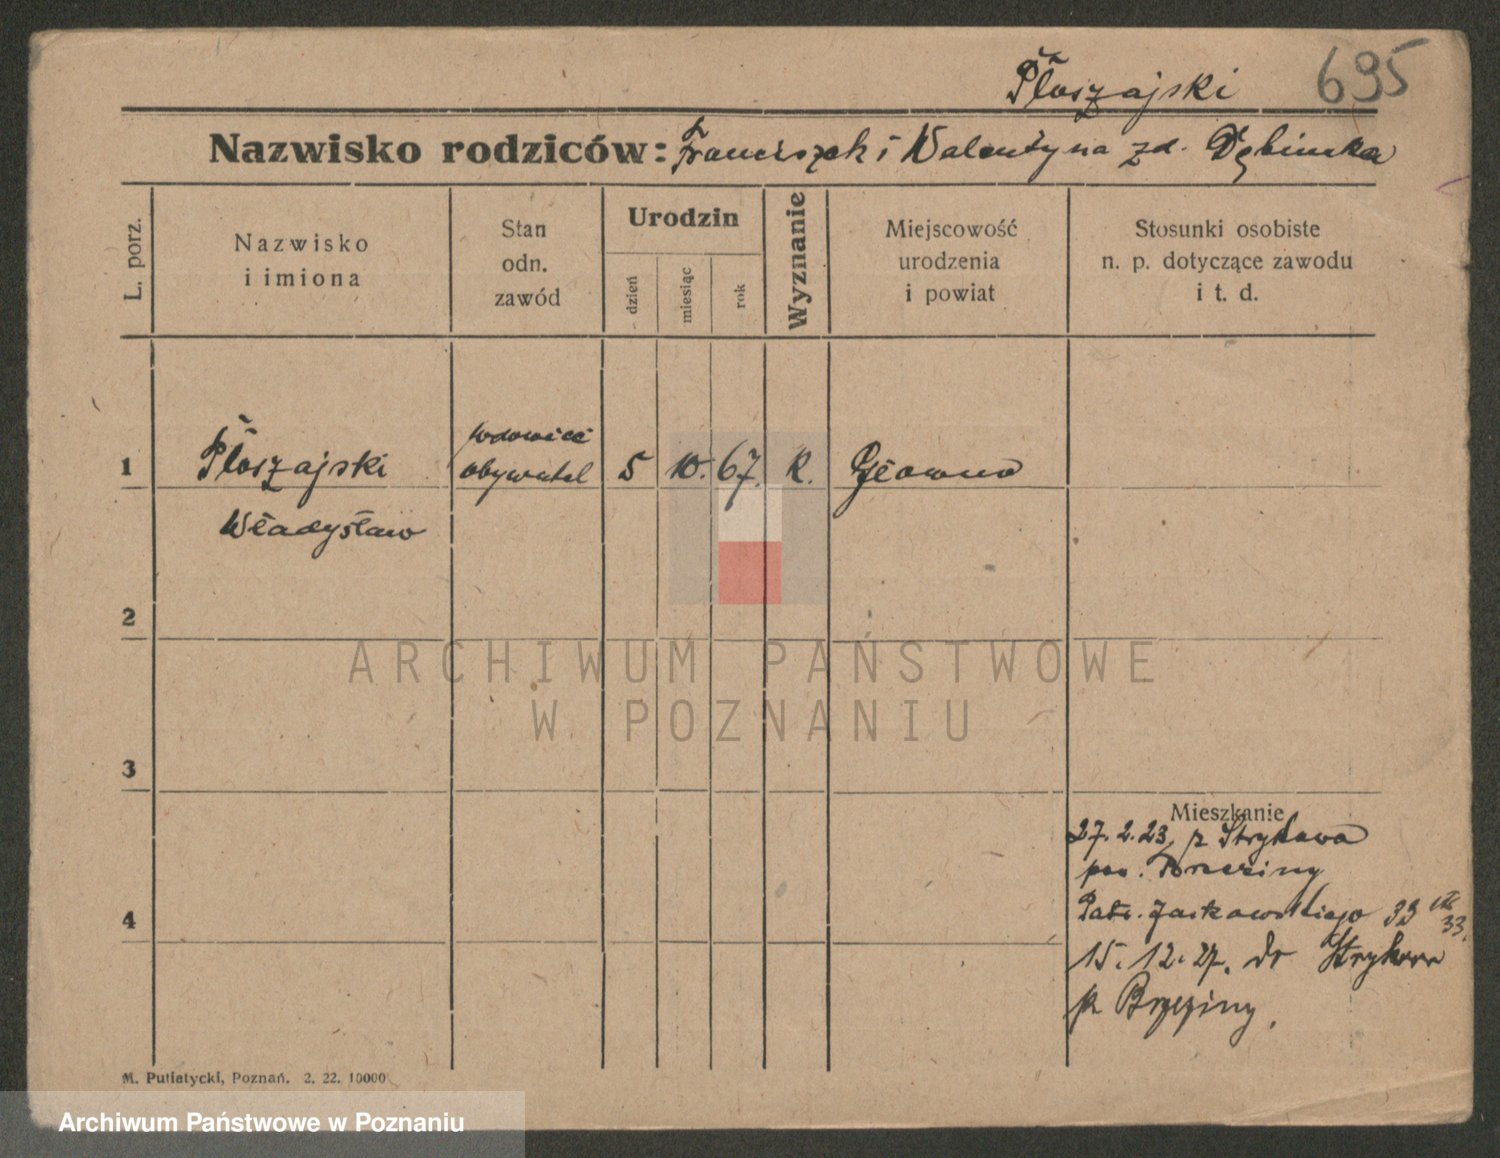 Płoszajski 695
Nazwisko rodziców: Franciszek i Walentyna zd. Dębinska
L. porz.
Nazwisko
i imiona
Stan
odn.
zawód
Urodzin
dzień
miesiąc
rok
Wyznanie
Miejscowość
urodzenia
i powiat
Stosunki osobiste
n. p. dotyczące zawodu
i t. d.
wdowiec
1 Płoszajski obywatel 5 10. 67. K. Głowno
Władysław
2
3
Mieszkanie
27. 2. 23, z Strykowa
pow. Brzeziny
Patr. Jackowskiego 33
33.
4
15. 12. 27. do Stryków
p. Brzeziny,
M. Putiatycki, Poznań. 2. 22. 10000
ARCHIWUM PAŃSTWOWE
W POZNANIU
Archiwum Państwowe w Poznaniu